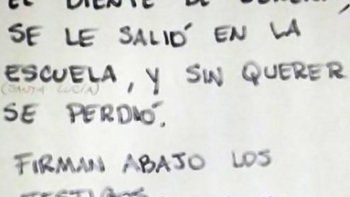 EL DIENTE DE
SE LE SALIÓ EN LA
ESCUELA, Y SIN QUERER
(SANTA LUCÍA)
SE PERDIÓ.
FIRMAN ABAJO LOS
TESTIGOS